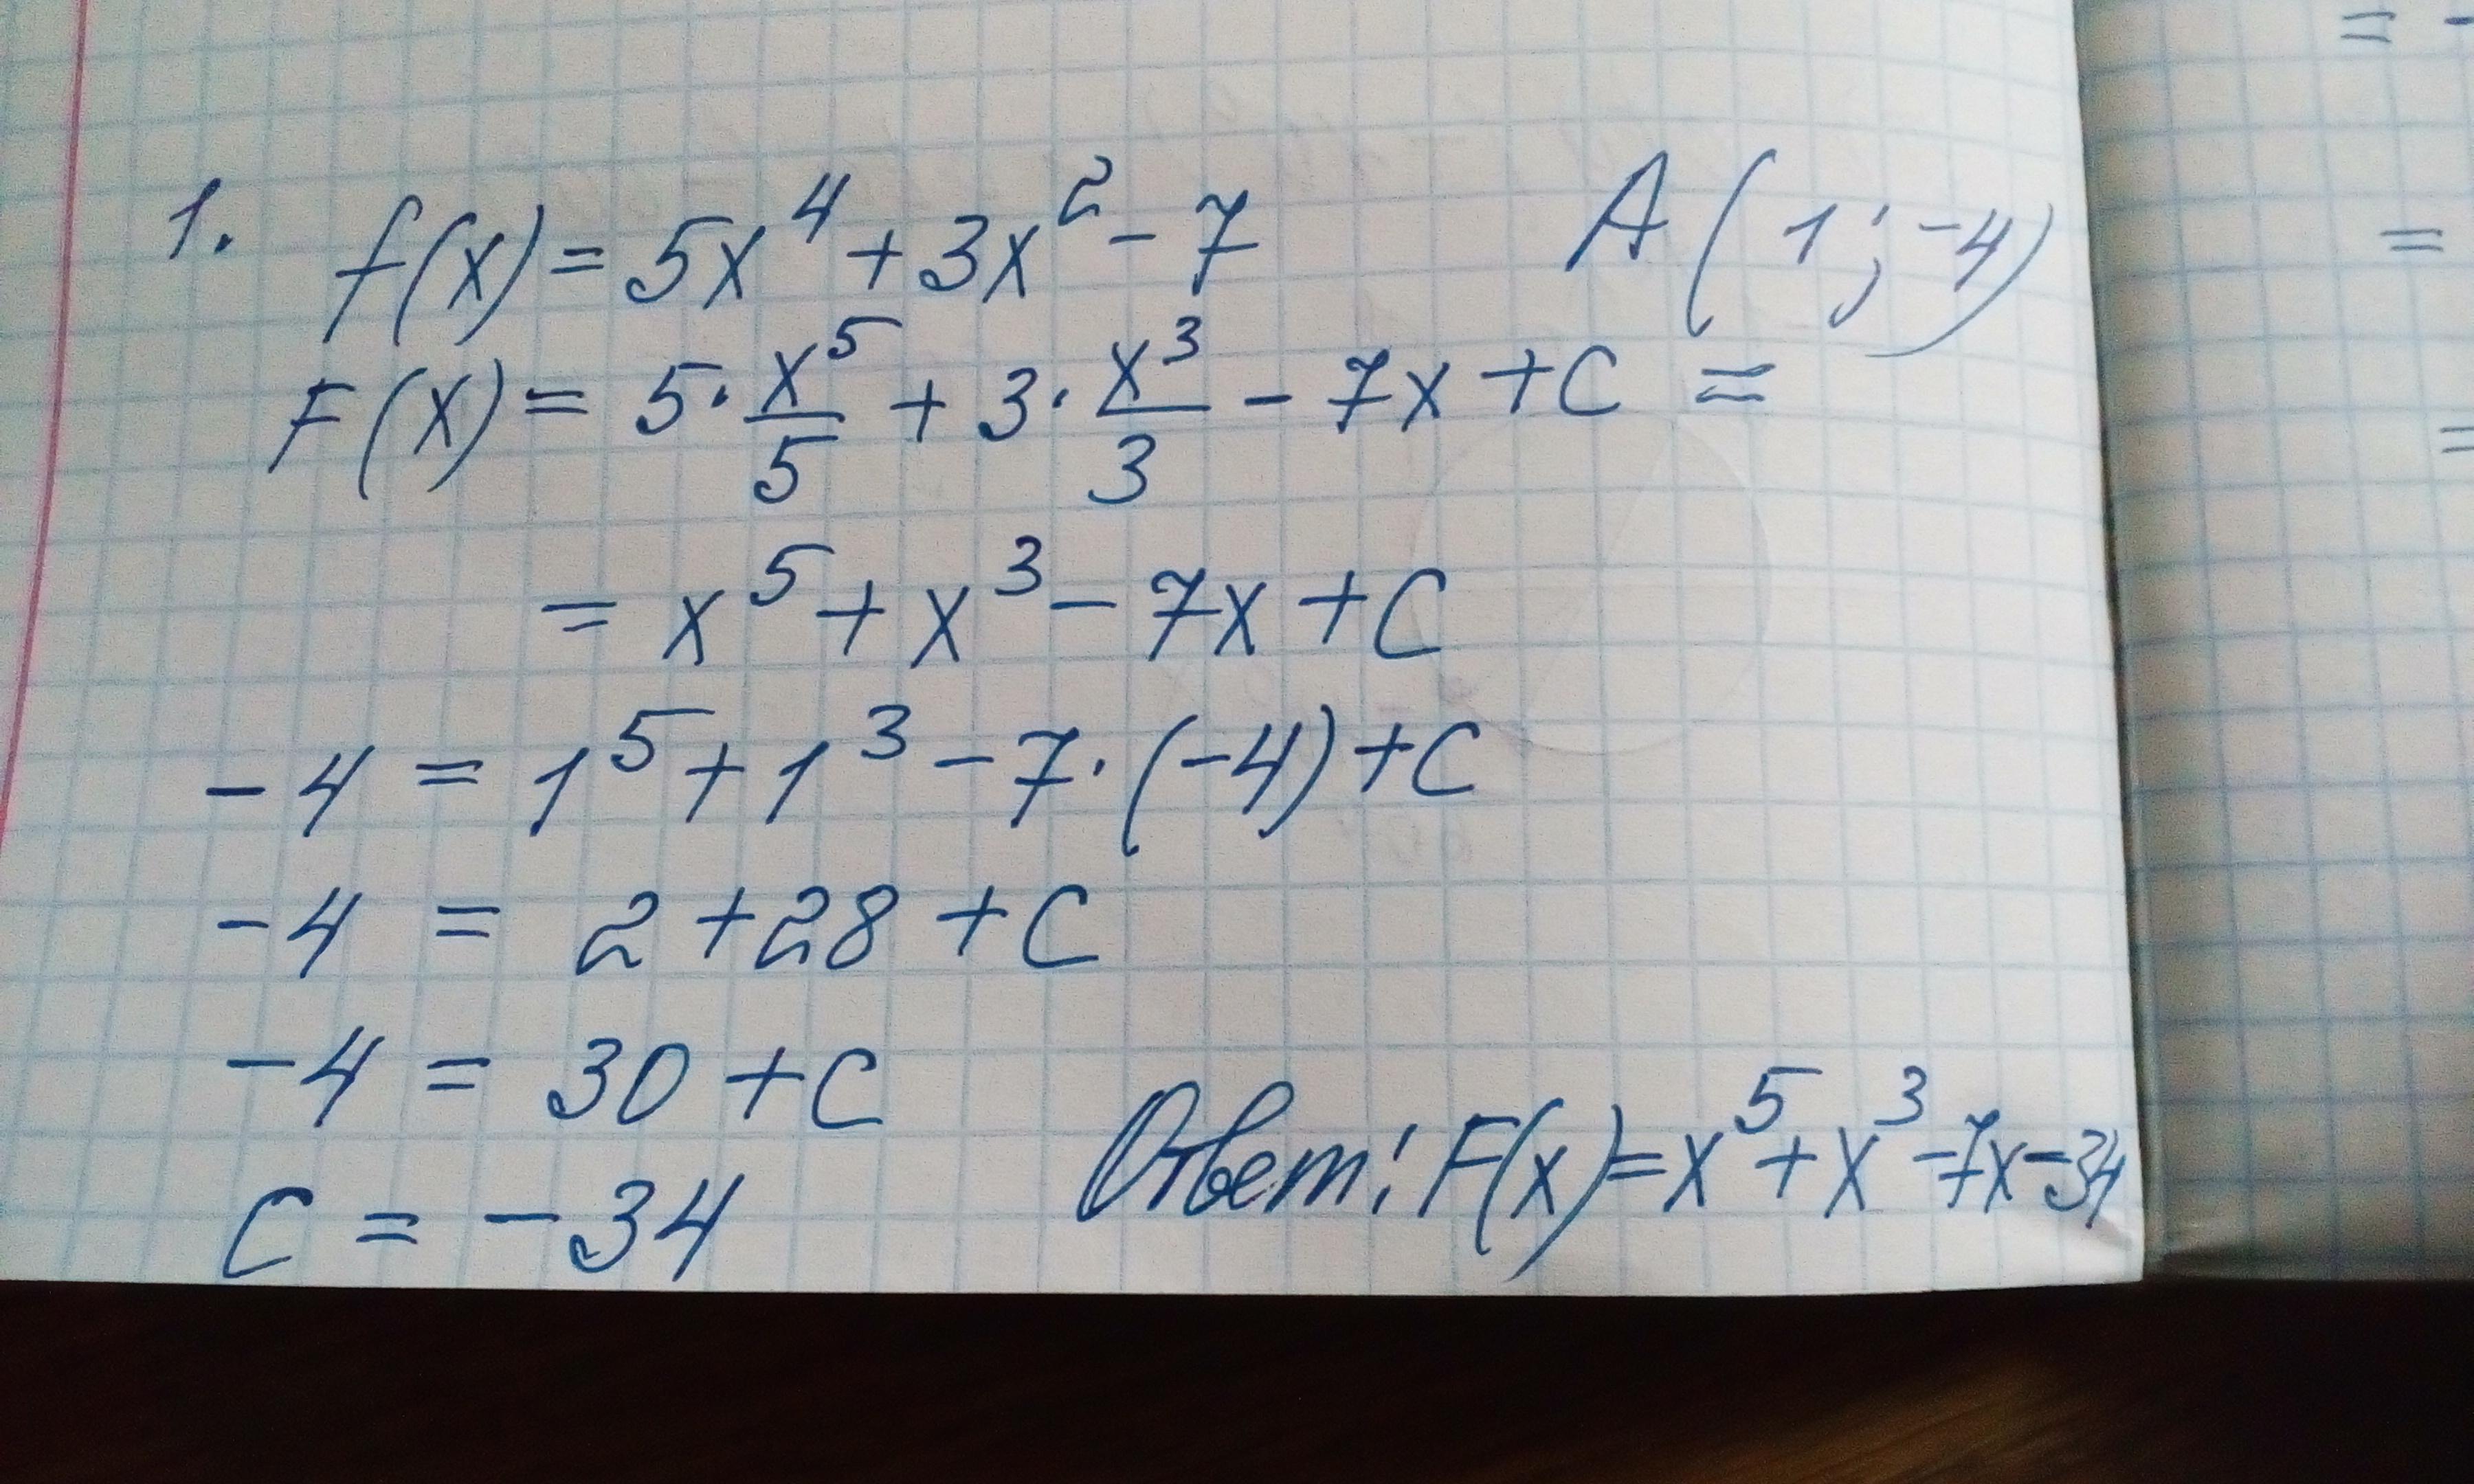 1. f(x) = 5x⁴ + 3x² - 7 A(1; -4)
F(x) = 5 · x⁵/5 + 3 · x³/3 - 7x + C =
= x⁵ + x³ - 7x + C
-4 = 1⁵ + 1³ - 7 · (-4) + C
-4 = 2 + 28 + C
-4 = 30 + C
C = -34
Ответ: F(x) = x⁵ + x³ - 7x - 34
= -
=
=